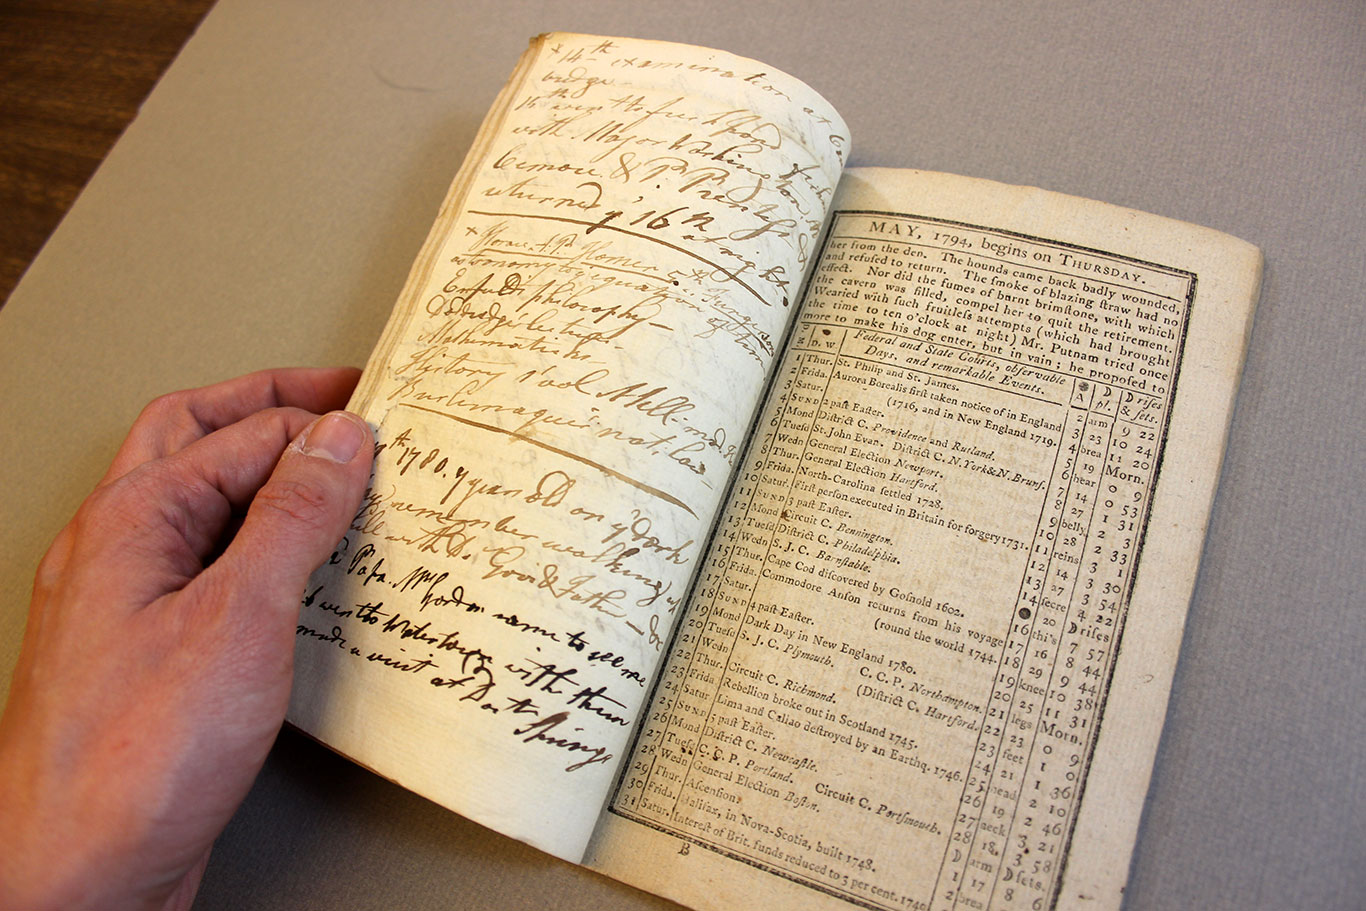 × 14th examination at
bridge
15th went to
with Major
& P. P.
returned ye 16th at night.
× Horace. A.P. Homer 5th
astronomy by equation of time
Enfield's philosophy—
Doddridge's lectures
Mathematicks—
History 1 vol. Mill
Burlamaqui nat. law
th 1780. 9 years old on ye dark
remember walking
with D. & Father—&c
Papa. Mr Gordon came to see me
went to Watertown with them
made a visit at Springs
MAY, 1794, begins on THURSDAY.
her from the den. The hounds came back badly wounded,
and refuſed to return. The ſmoke of blazing ſtraw had no
effect. Nor did the fumes of burnt brimſtone, with which
the cavern was filled, compel her to quit the retirement.
Wearied with ſuch fruitleſs attempts (which had brought
the time to ten o'clock at night) Mr. Putnam tried once
more to make his dog enter, but in vain; he propoſed to
D. W. Federal and State Courts, obſervable A D D riſes
Days, and remarkable Events. pl. & ſets.
1 Thur. St. Philip and St. James. 2 arm 9 22
2 Frida. Aurora Borealis firſt taken notice of in England 3 23 10 24
3 Satur. (1716, and in New England 1719. 4 brea 11 20
4 SUND 2 paſt Eaſter. 5 19 Morn.
5 Mond Diſtrict C. Providence and Rutland. 6 hear 0 9
6 Tueſd St. John Evan. Diſtrict C. N. York & N. Brunſ. 7 14 0 53
7 Wedn General Election Newport. 8 27 1 31
8 Thur. General Election Hartford. 9 belly 2 3
9 Frida. North-Carolina ſettled 1728. 10 28 2 33
10 Satur. Firſt perſon executed in Britain for forgery 1731. 11 reins 3 1
11 SUND 3 paſt Eaſter. 12 14 3 30
12 Mond Circuit C. Bennington. 13 27 3 54
13 Tueſd Diſtrict C. Philadelphia. 14 ſecre 4 22
14 Wedn S. J. C. Barnſtable. 20 D riſes
15 Thur. Cape Cod diſcovered by Goſnold 1602. 16 thi's 7 57
16 Frida. Commodore Anſon returns from his voyage 17 16 8 44
17 Satur. (round the world 1744. 18 29 9 44
18 SUND 4 paſt Eaſter. 19 knee 10 38
19 Mond Dark Day in New England 1780. 20 25 11 31
20 Tueſd S. J. C. Plymouth. C. C. P. Northampton. 21 legs Morn.
21 Wedn (Diſtrict C. Hartford. 22 23 0 9
22 Thur. Circuit C. Richmond. 23 feet 1 0
23 Frida Rebellion broke out in Scotland 1745. 24 21 1 36
24 Satur Lima and Callao deſtroyed by an Earthq. 1746. 25 head 2 10
25 SUND 5 paſt Eaſter. 26 19 2 46
26 Mond Diſtrict C. Newcaſtle. 27 neck 3 21
27 Tueſd C. C. P. Portland. Circuit C. Portſmouth. 28 18 3 58
28 Wedn General Election Boſton. D arm D ſets.
29 Thur. Aſcenſion 1 17 8 6
30 Frida. Halifax, in Nova-Scotia, built 1748. 2 brea
31 Satur. Intereſt of Brit. funds reduced to 3 per cent. 1749
B